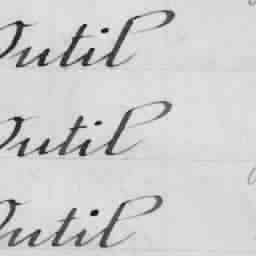 Outil
Outil
Outil